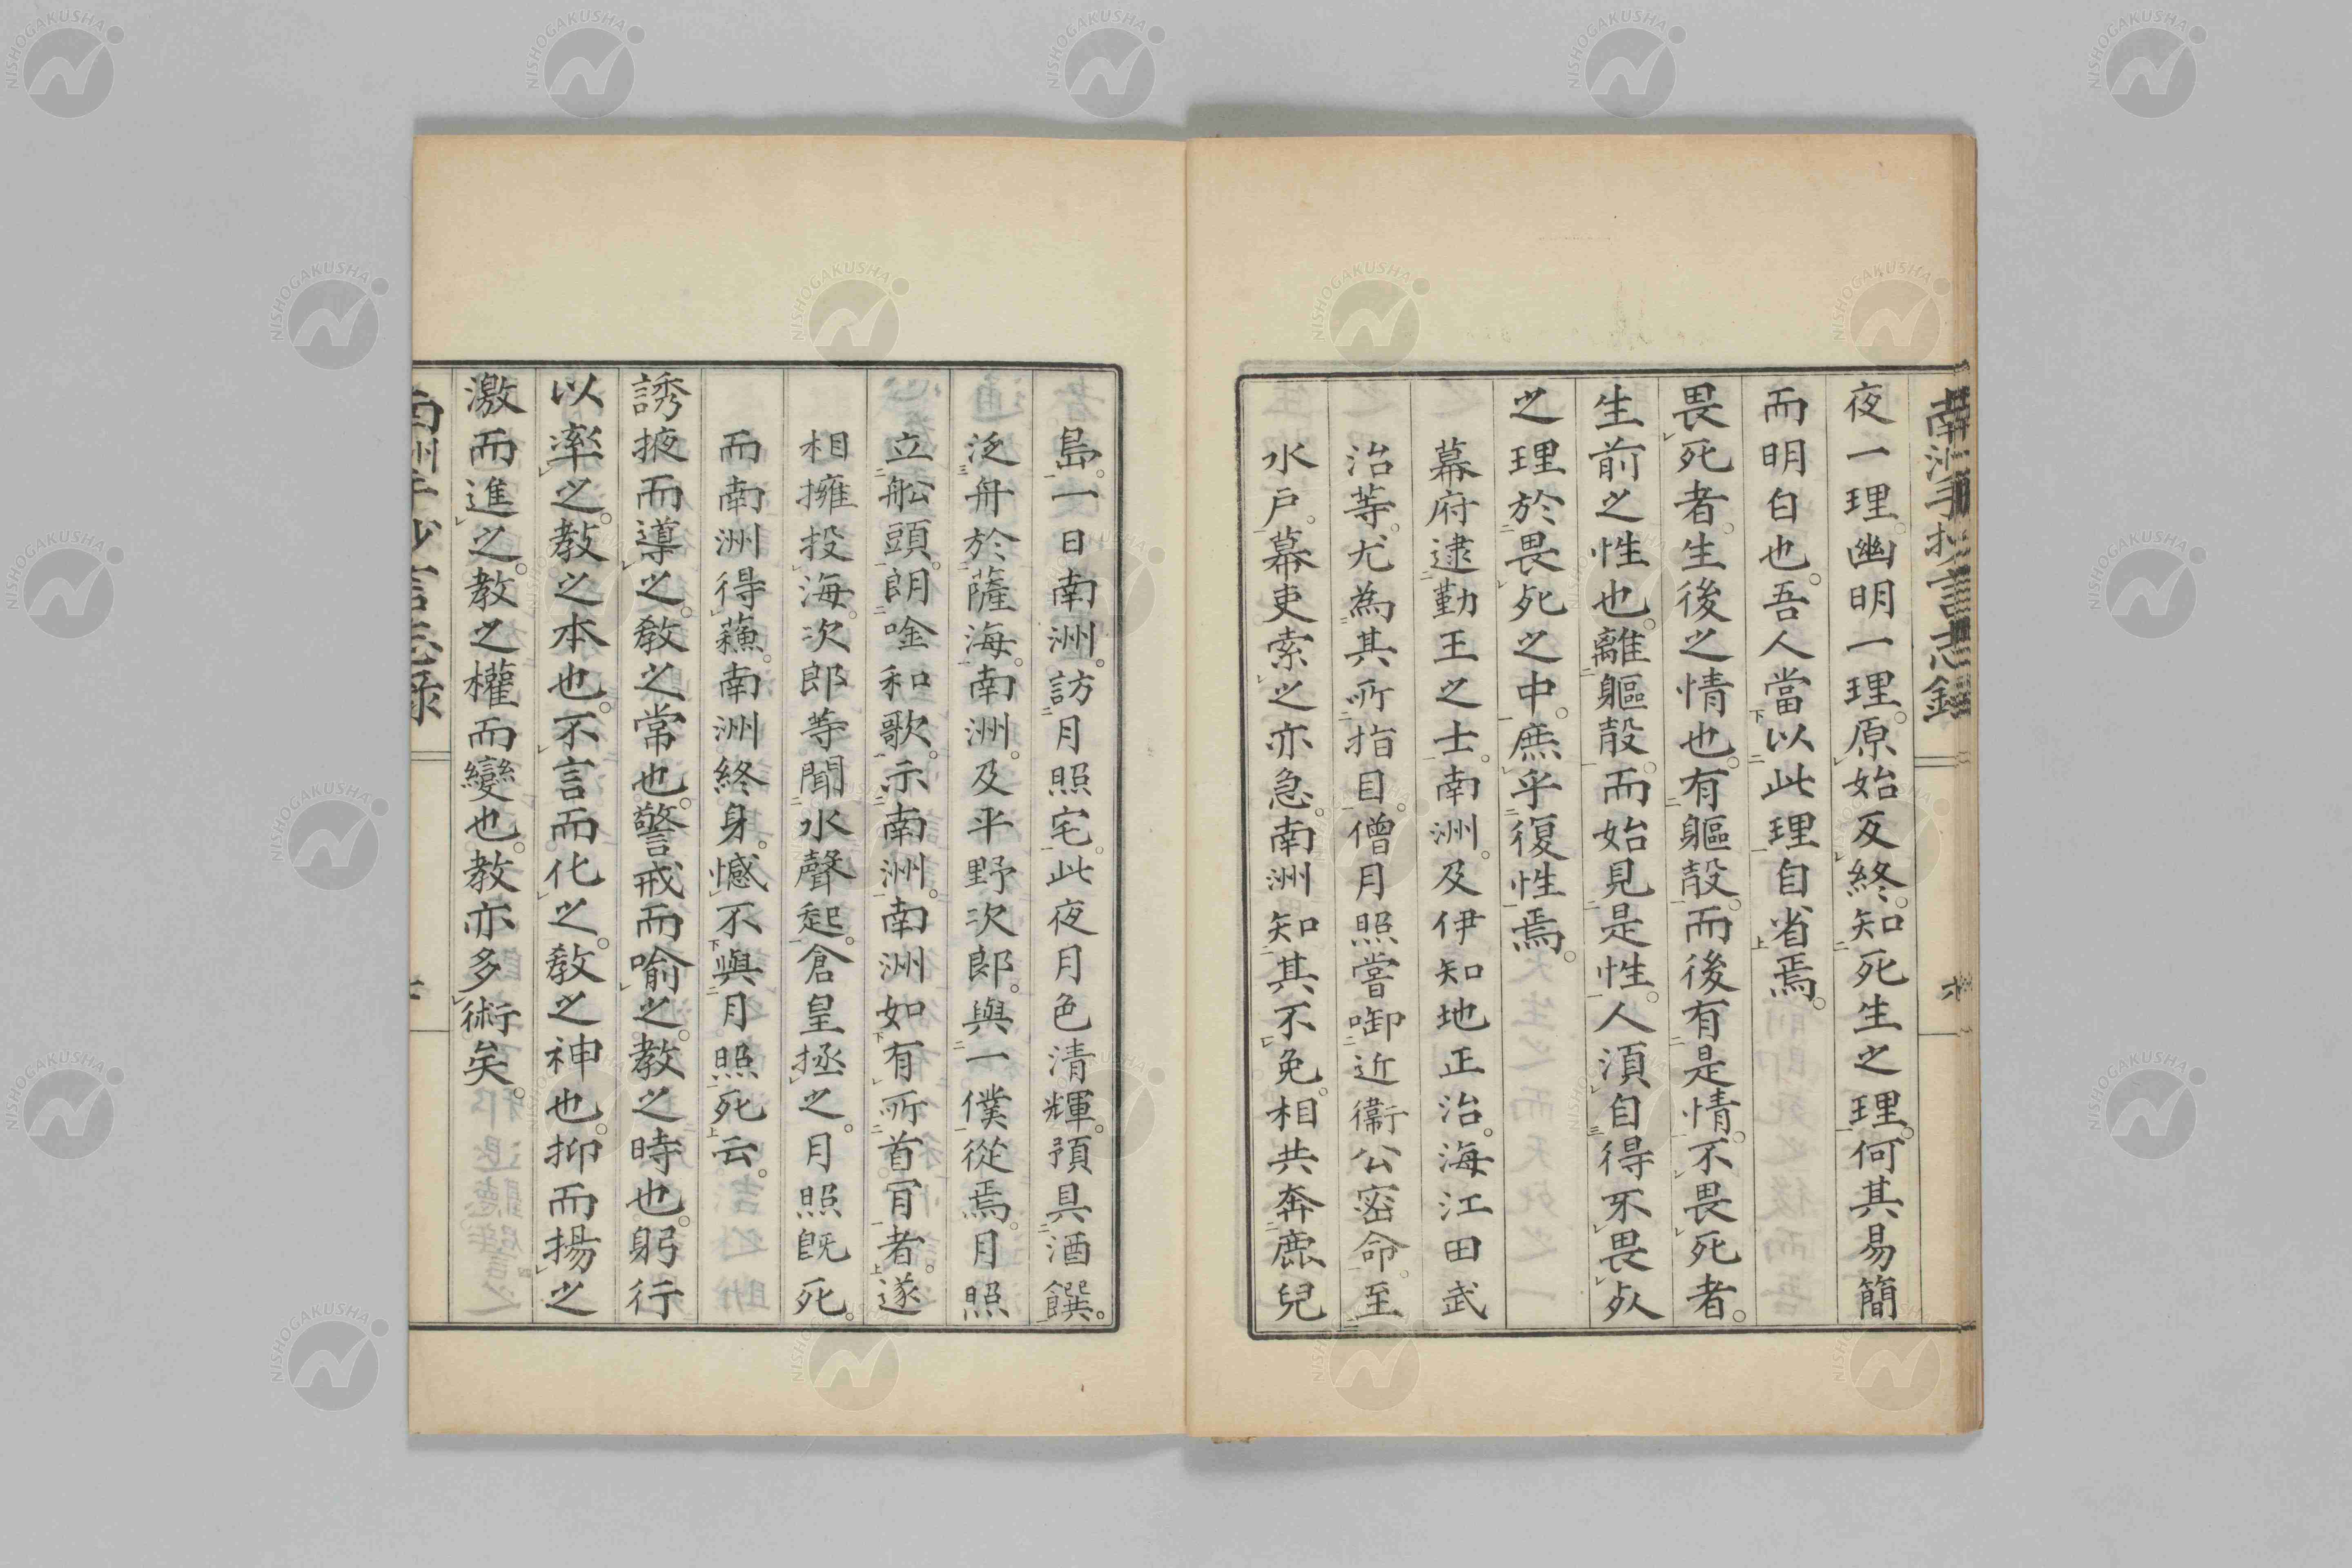 南洲手抄言志錄
六
夜一理幽明一理。原始反終。知死生之理。何其易簡
而明白也。吾人當以此理自省焉。
畏死者。生後之情也。有軀殼而後有是情。不畏死者。
生前之性也。離軀殼而始見是性。人須自得不畏死
之理於畏死之中。庶乎復性焉。
幕府逮勤王之士。南洲。及伊知地正治。海江田武
治等。尤為其所指目。僧月照嘗啣近衞公密命。至
水戶。幕吏索之亦急。南洲知其不免。相共奔鹿兒
島。一日南洲。訪月照宅。此夜月色清輝。預具酒饌。
泛舟於薩海。南洲。及平野次郎。與一僕從焉。月照
立舩頭。朗唫和歌。示南洲。南洲如有所首肎者。遂
相擁投海。次郎等聞水聲起。倉皇拯之。月照旣死。
而南洲得蘓。南洲終身。憾不與月照死云。
誘掖而導之。敎之常也。警戒而喻之。敎之時也。躬行
以率之。敎之本也。不言而化之。敎之神也。抑而揚之
激而進之。敎之權而變也。敎亦多術矣。
南洲手抄言志錄